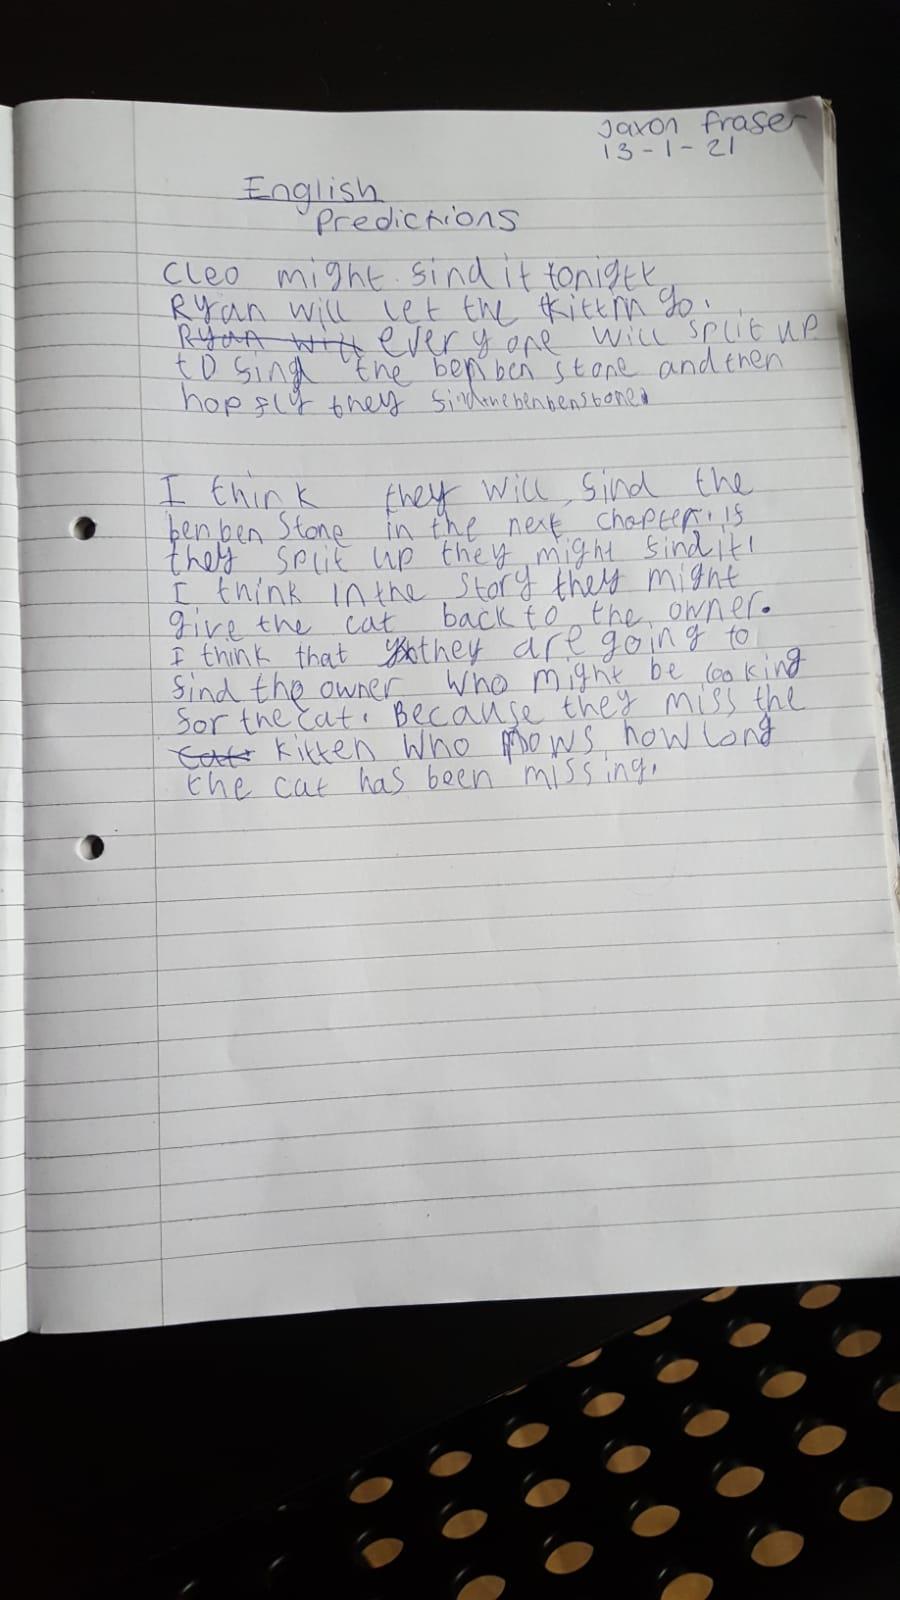 Jaxon fraser
13-1-21
English
Predictions
Cleo might sind it tonigtt
Ryan will let the kittn go.
Ryan will every one will split up
to sind the benben stone and then
hopfly they sind the benbenstone.
I think they will sind the
benben Stone in the next chapter. is
they split up they might sind it!
I think in the story they might
give the cat back to the owner.
I think that they are going to
sind the owner who might be looking
sor the cat. Because they miss the
cat kitten who nows how long
the cat has been missing.